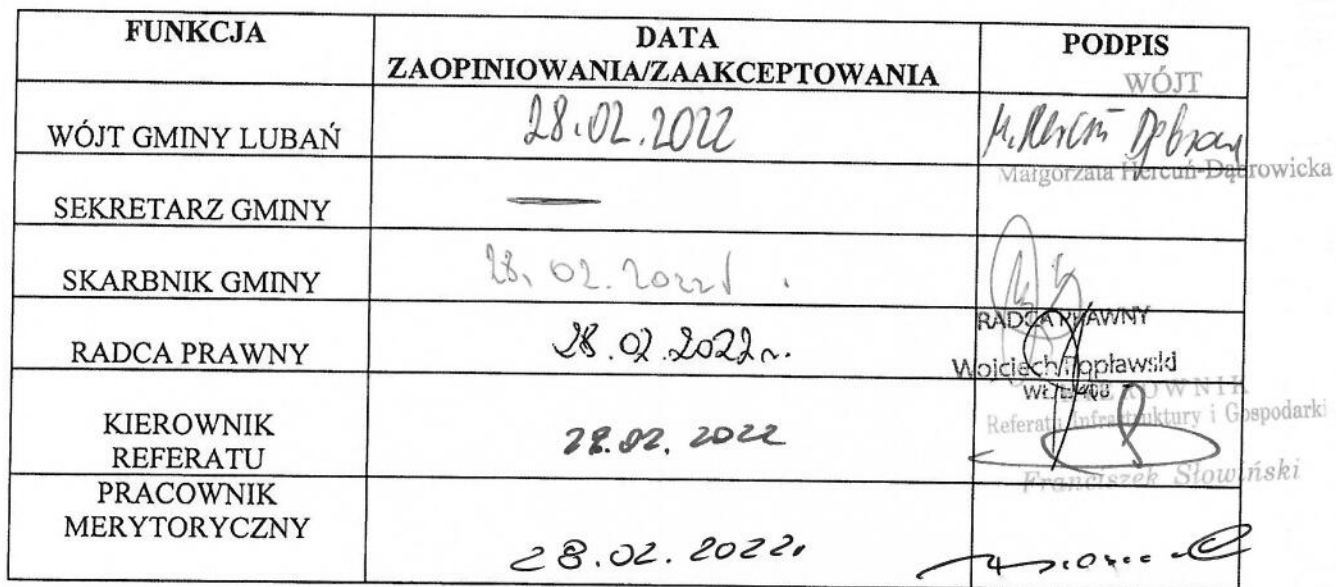 FUNKCJA
DATA
ZAOPINIOWANIA/ZAAKCEPTOWANIA
PODPIS
WÓJT
WÓJT GMINY LUBAŃ
28.02.2022
Małgorzata Hercuń-Dąbrowicka
SEKRETARZ GMINY
—
SKARBNIK GMINY
28.02.2022
RADCA PRAWNY
28.02.2022 r.
RADCA PRAWNY
Wojciech Popławski
KIEROWNIK
REFERATU
28.02.2022
KIEROWNIK
Referatu Infrastruktury i Gospodarki
Franciszek Słowiński
PRACOWNIK
MERYTORYCZNY
28.02.2022.